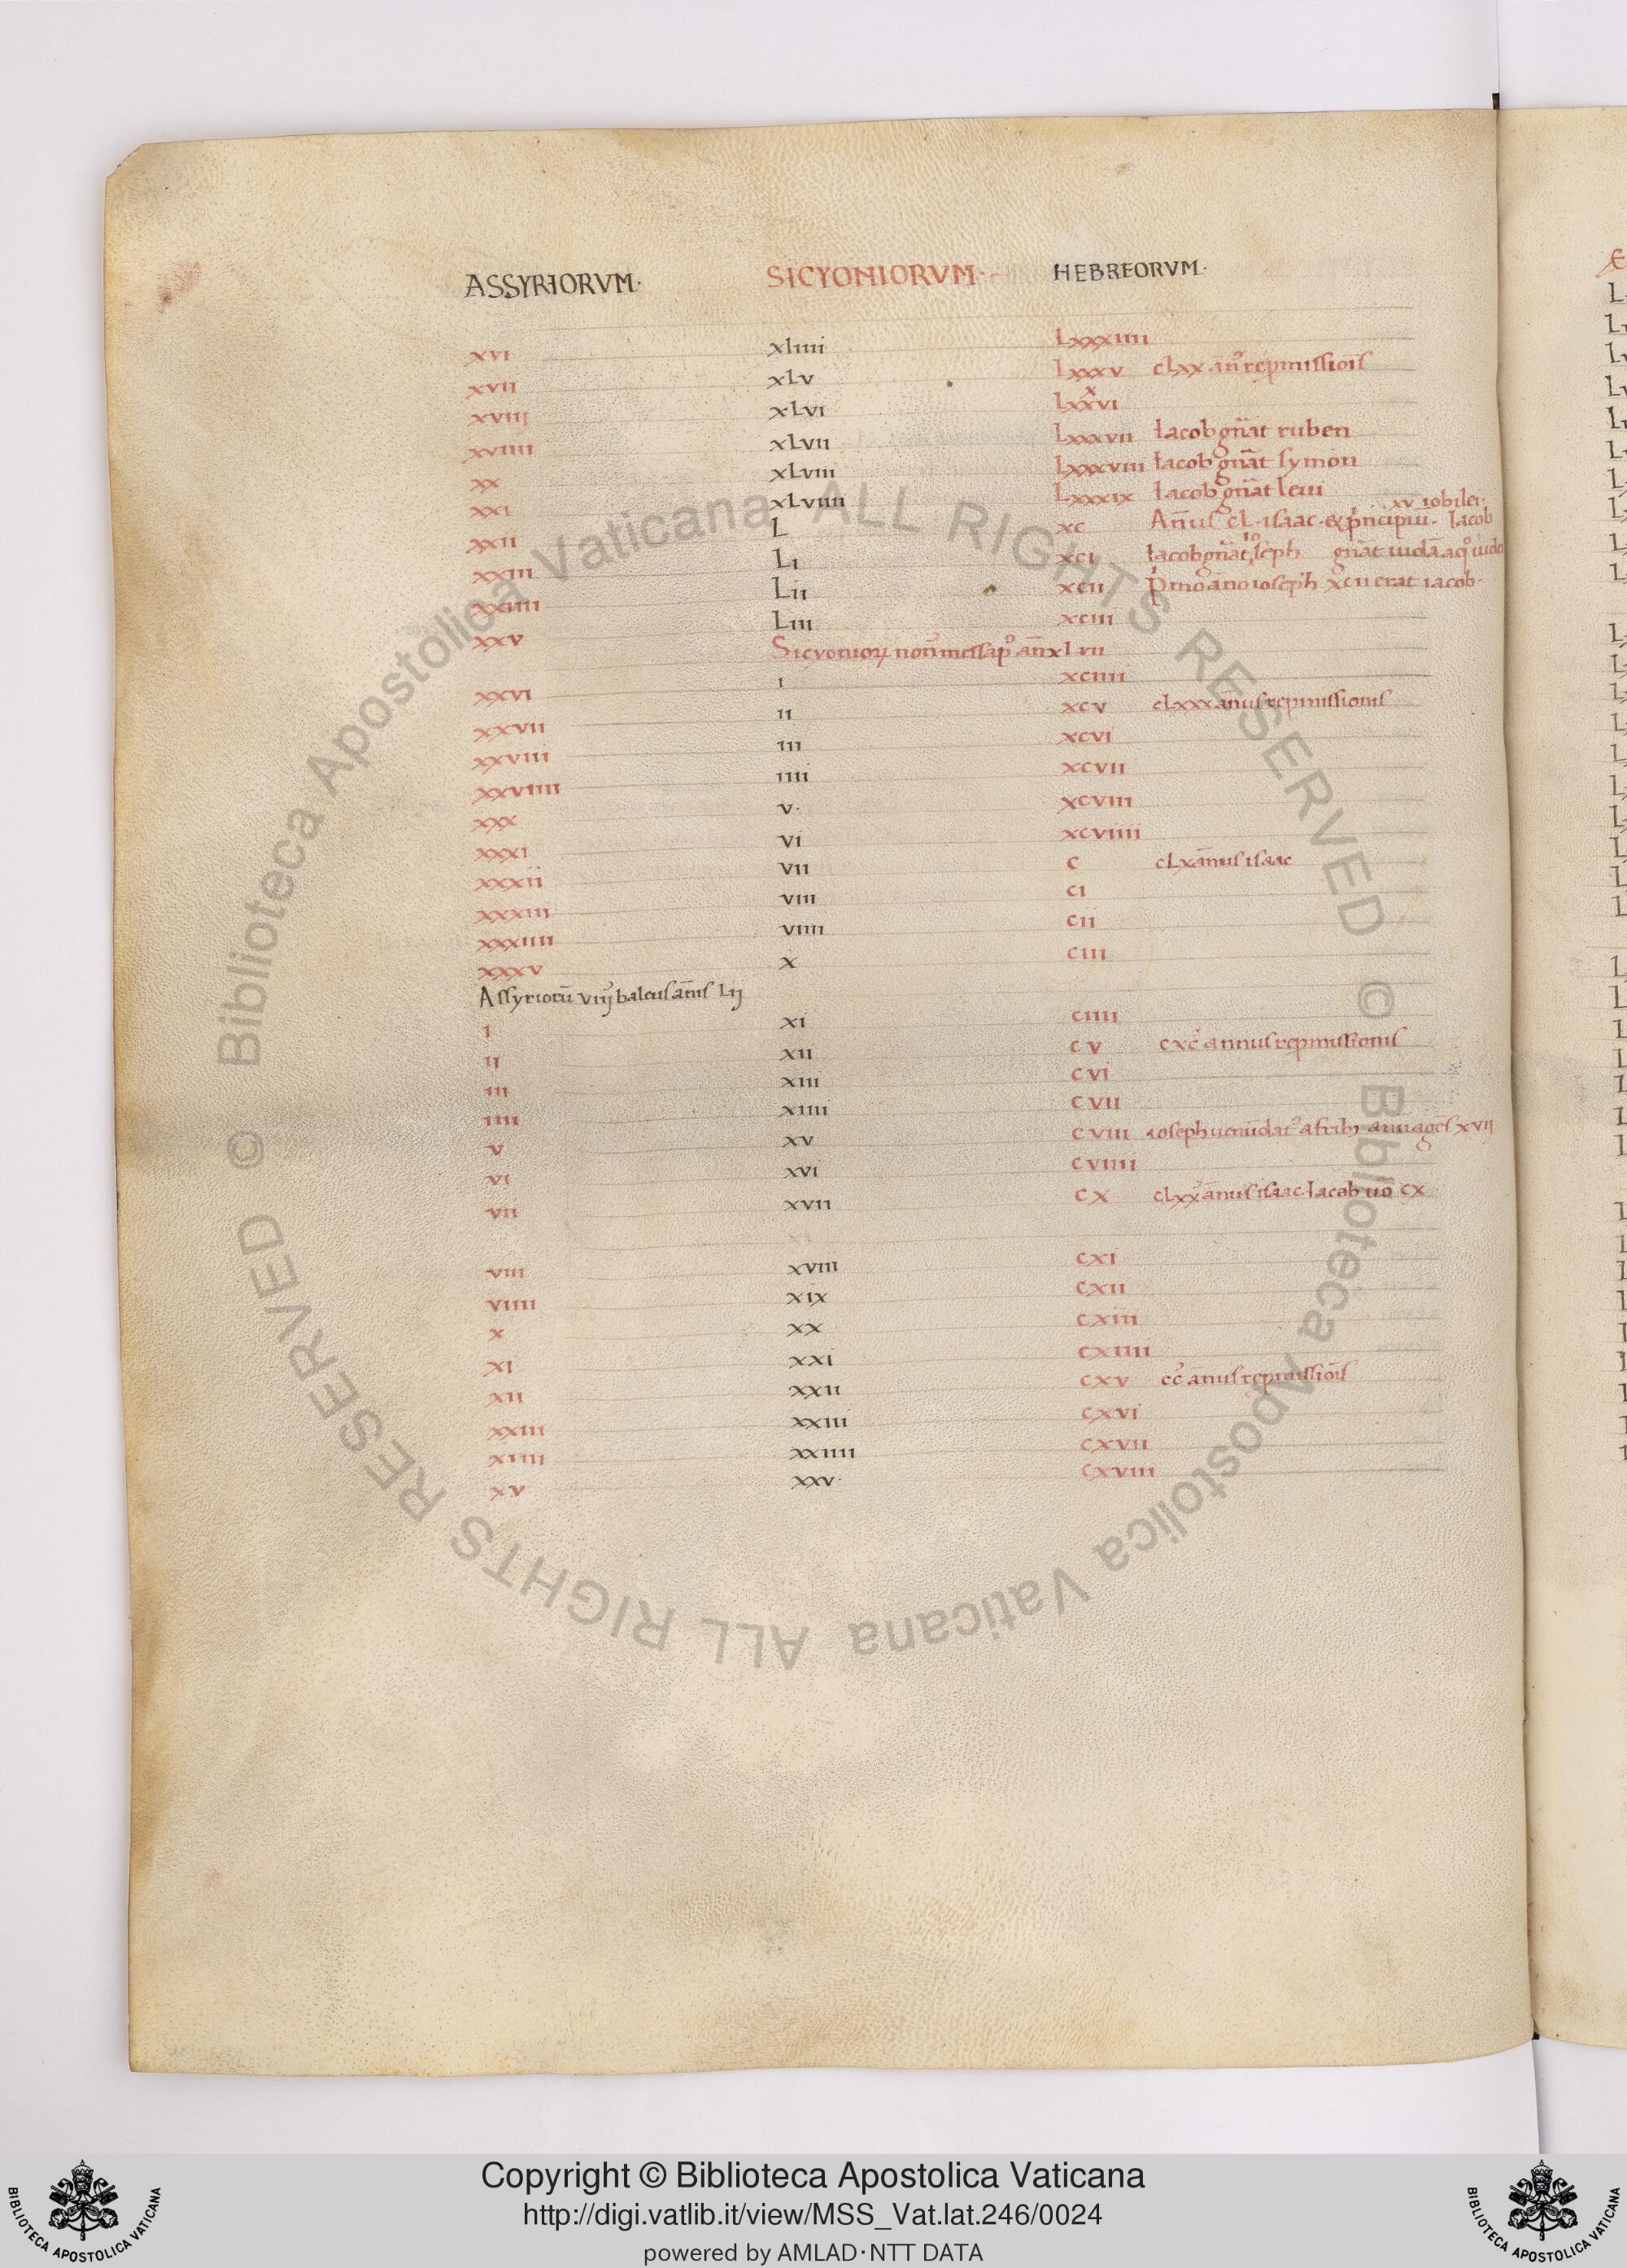 ASSYRIORVM· SICYONIORVM· HEBREORVM·
xvi xliiii Lxxxiiii
xvii xLv Lxxxv cLxx·an̄ repmissiois
xviii xLvi Lxxxvi
xviiii xLvii Lxxxvii Iacob gn̄at ruben
xx xLviii Lxxxviii Iacob gn̄at symon
xxi xLviiii Lxxxix Iacob gn̄at leui
xv iobilei·
xxii L xc An̄us cL·isaac· Iacob
xxiii Li xci Iacob gn̄at ioseph gn̄at iudā
xxiiii Lii xcii p̍mo ano ioseph xcii erat iacob·
xxv Liii xciii
xLvii
xxvi i xciiii
xxvii ii xcv cLxxx an̄us repmissionis
xxviii iii xcvi
xxviiii iiii xcvii
xxx v· xcviii
xxxi vi xcviiii
xxxii vii c cLx an̄us isaac
xxxiii viii ci
xxxiiii viiii cii
xxxv x ciii
Assyriorū viij baleus an̄is Lij
i xi ciiii
ii xii cv cxc annus repmissionis
iii xiii cvi
iiii xiiii cvii
v xv cviii ioseph uenūdat᾽ a frib; xvii
vi xvi cviiii
vii xvii cx cLxx an̄us isaac·Iacob uō cx
viii xviii cxi
viiii xix cxii
x xx cxiii
xi xxi cxiiii
xii xxii cxv cc anus repmissiōis
xxiii xxiii cxvi
xiiii xxiiii cxvii
xv xxv· cxviii
© Biblioteca Apostolica Vaticana ALL RIGHTS RESERVED © Biblioteca Apostolica Vaticana ALL RIGHTS RESERVED
Copyright © Biblioteca Apostolica Vaticana
http://digi.vatlib.it/view/MSS_Vat.lat.246/0024
powered by AMLAD·NTT DATA
BIBLIOTECA APOSTOLICA VATICANA
BIBLIOTECA APOSTOLICA VATICANA